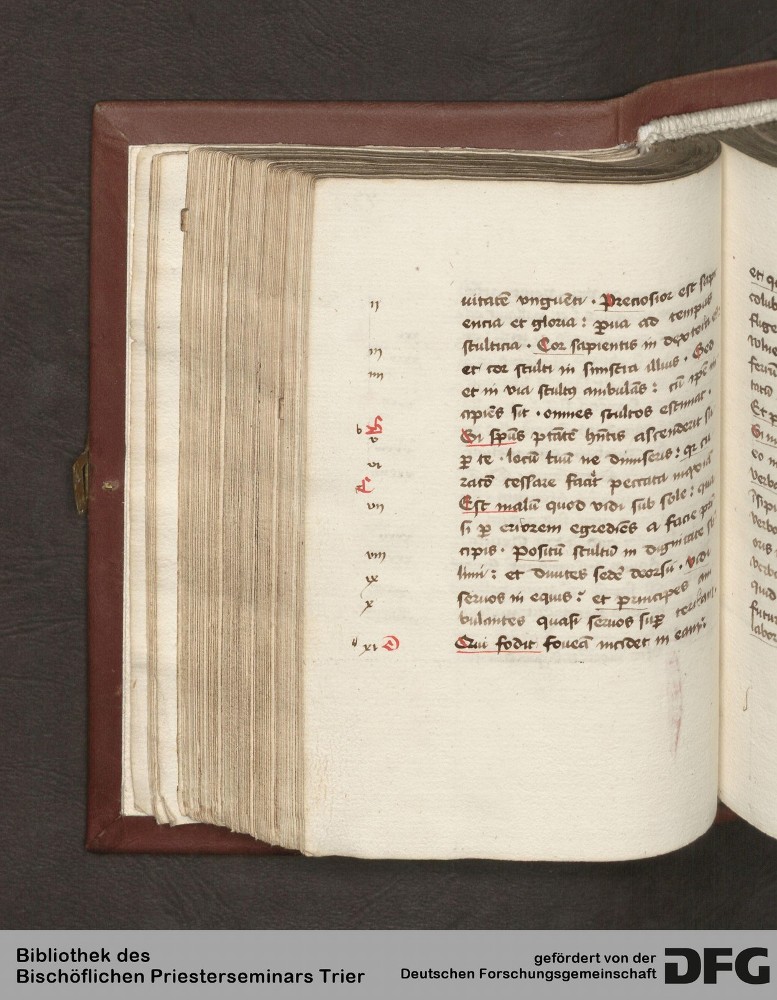 ij
uitatē vnguēti · Preciosior est sapi
encia et gloria : ꝑua ad tempus
stulticia · Cor sapientis in dextera eiꝰ
iij
et cor stulti in sinistra illius · Sed
iiij
et in via stultꝰ ambulās : cū ipse in
cipiēs sit · omnes stultos estimat ·
b
v
Si spūs ptātē hn̄tis ascenderit su
vi
ꝑ te · locū tuū ne dimiseris : qꝛ cu
racō cessare faciet peccata maxima
vij
Est malū quod vidi sub sole : quasi
ꝑ errorem egrediēs a facie prin
viij
cipis · Positū stultū in dignitate sub
limi : et diuites sedē deorsū · Vidi
ix
seruos in equis : et principes am
x
bulantes quasi seruos suꝑ terram ·
xi
d
Qui fodit foueā incidet in eam :
et q
colub
fuge
tatū
Et p
Si m
eo m
verbo
oris
verbo
quid
futur
labor
Bibliothek des
Bischöflichen Priesterseminars Trier
gefördert von der
Deutschen Forschungsgemeinschaft
DFG